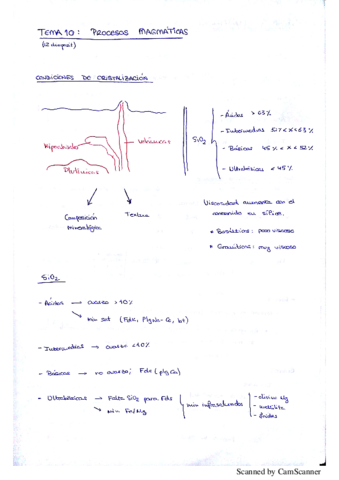 TEMA 10: PROCESOS MAGMÁTICAS
CONDICIONES DE CRISTALIZACIÓN
Hipoabisales
volcánicas
Plutónicas
SiO2
- Ácidas > 63%
- Intermedias 52% < x < 63%
- Básicas 45% < x < 52%
- Ultrabásicas < 45%
Composición
mineralógica
Textura
Viscosidad aumenta con el
contenido en sílice.
• Basálticas: poco viscoso
• Graníticas: muy viscoso
SiO2
- Ácidas → cuarzo >10%
→ min sat (FdK, PlgNa-Q, bt)
- Intermedias → cuarzo <10%
- Básicas → no cuarzo; Fds (plgCa)
- Ultrabásicas → Falta SiO2 para Fds
→ min Fe/Mg
min infrasaturados
- olivino Mg
- melilita
Scanned by CamScanner